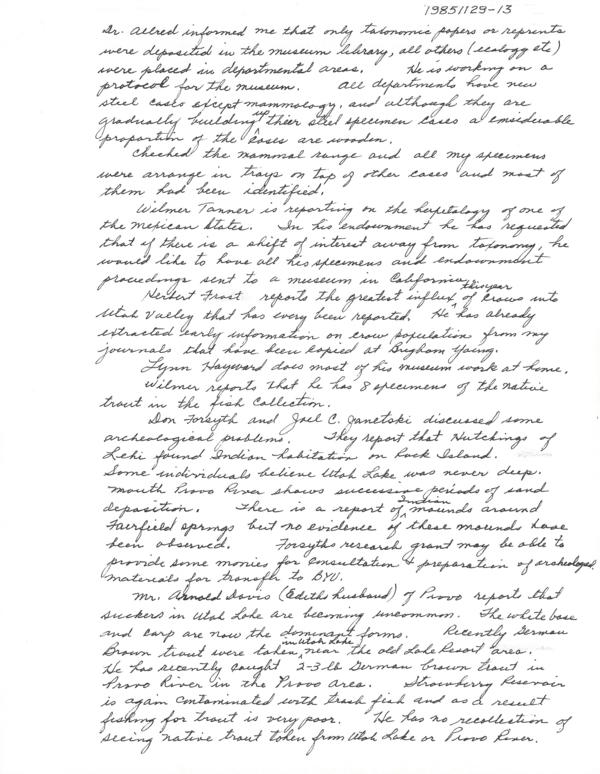 19851129-13
Dr. Allred informed me that only taxonomic papers or reprints
were deposited in the museum library, all others (ecology etc)
were placed in departmental areas. He is working on a
protocol for the museum. All departments have new
steel cases except mammology, and although they are
gradually building up thier steel specimen cases a considerable
proportion of the cases are wooden.
Checked the mammal range and all my specimens
were arrange in trays on top of other cases and most of
them had been identified.
Wilmer Tanner is reporting on the herpetology of one of
the Mexican States. In his endownment he has requested
that if there is a shift of interest away from taxonomy, he
would like to have all his specimens and endownment
proceedings sent to a museum in California.
Herbert Frost reports the greatest influx of crows this year into
Utah Valley that has every been reported. He has already
extracted early information on crow population from my
journals that have been copied at Brigham Young.
Lynn Hayward does most of his museum work at home.
Wilmer reports that he has 8 specimens of the native
trout in the fish collection.
Don Forsyth and Joel C. Janetski discussed some
archeological problems. They report that Hutchings of
Lehi found Indian habitation on Rock Island.
Some individuals believe Utah Lake was never deep.
Mouth Provo River shows successive periods of sand
deposition. There is a report of Indian mounds around
Fairfield springs but no evidence of these mounds have
been observed. Forsyths research grant may be able to
provide some monies for consultation & preparation of archeological
materials for transfer to BYU.
Mr. Arnold Davis (Ediths husband) of Provo report that
suckers in Utah Lake are becoming uncommon. The white bass
and carp are now the dominant forms. Recently German
Brown trout were taken in Utah Lake near the old Lake Resort area.
He has recently caught 2-3 lb German brown trout in
Provo River in the Provo area. Strawberry Reservoir
is again contaminated with trash fish and as a result
fishing for trout is very poor. He has no recollection of
seeing native trout taken from Utah Lake or Provo River.